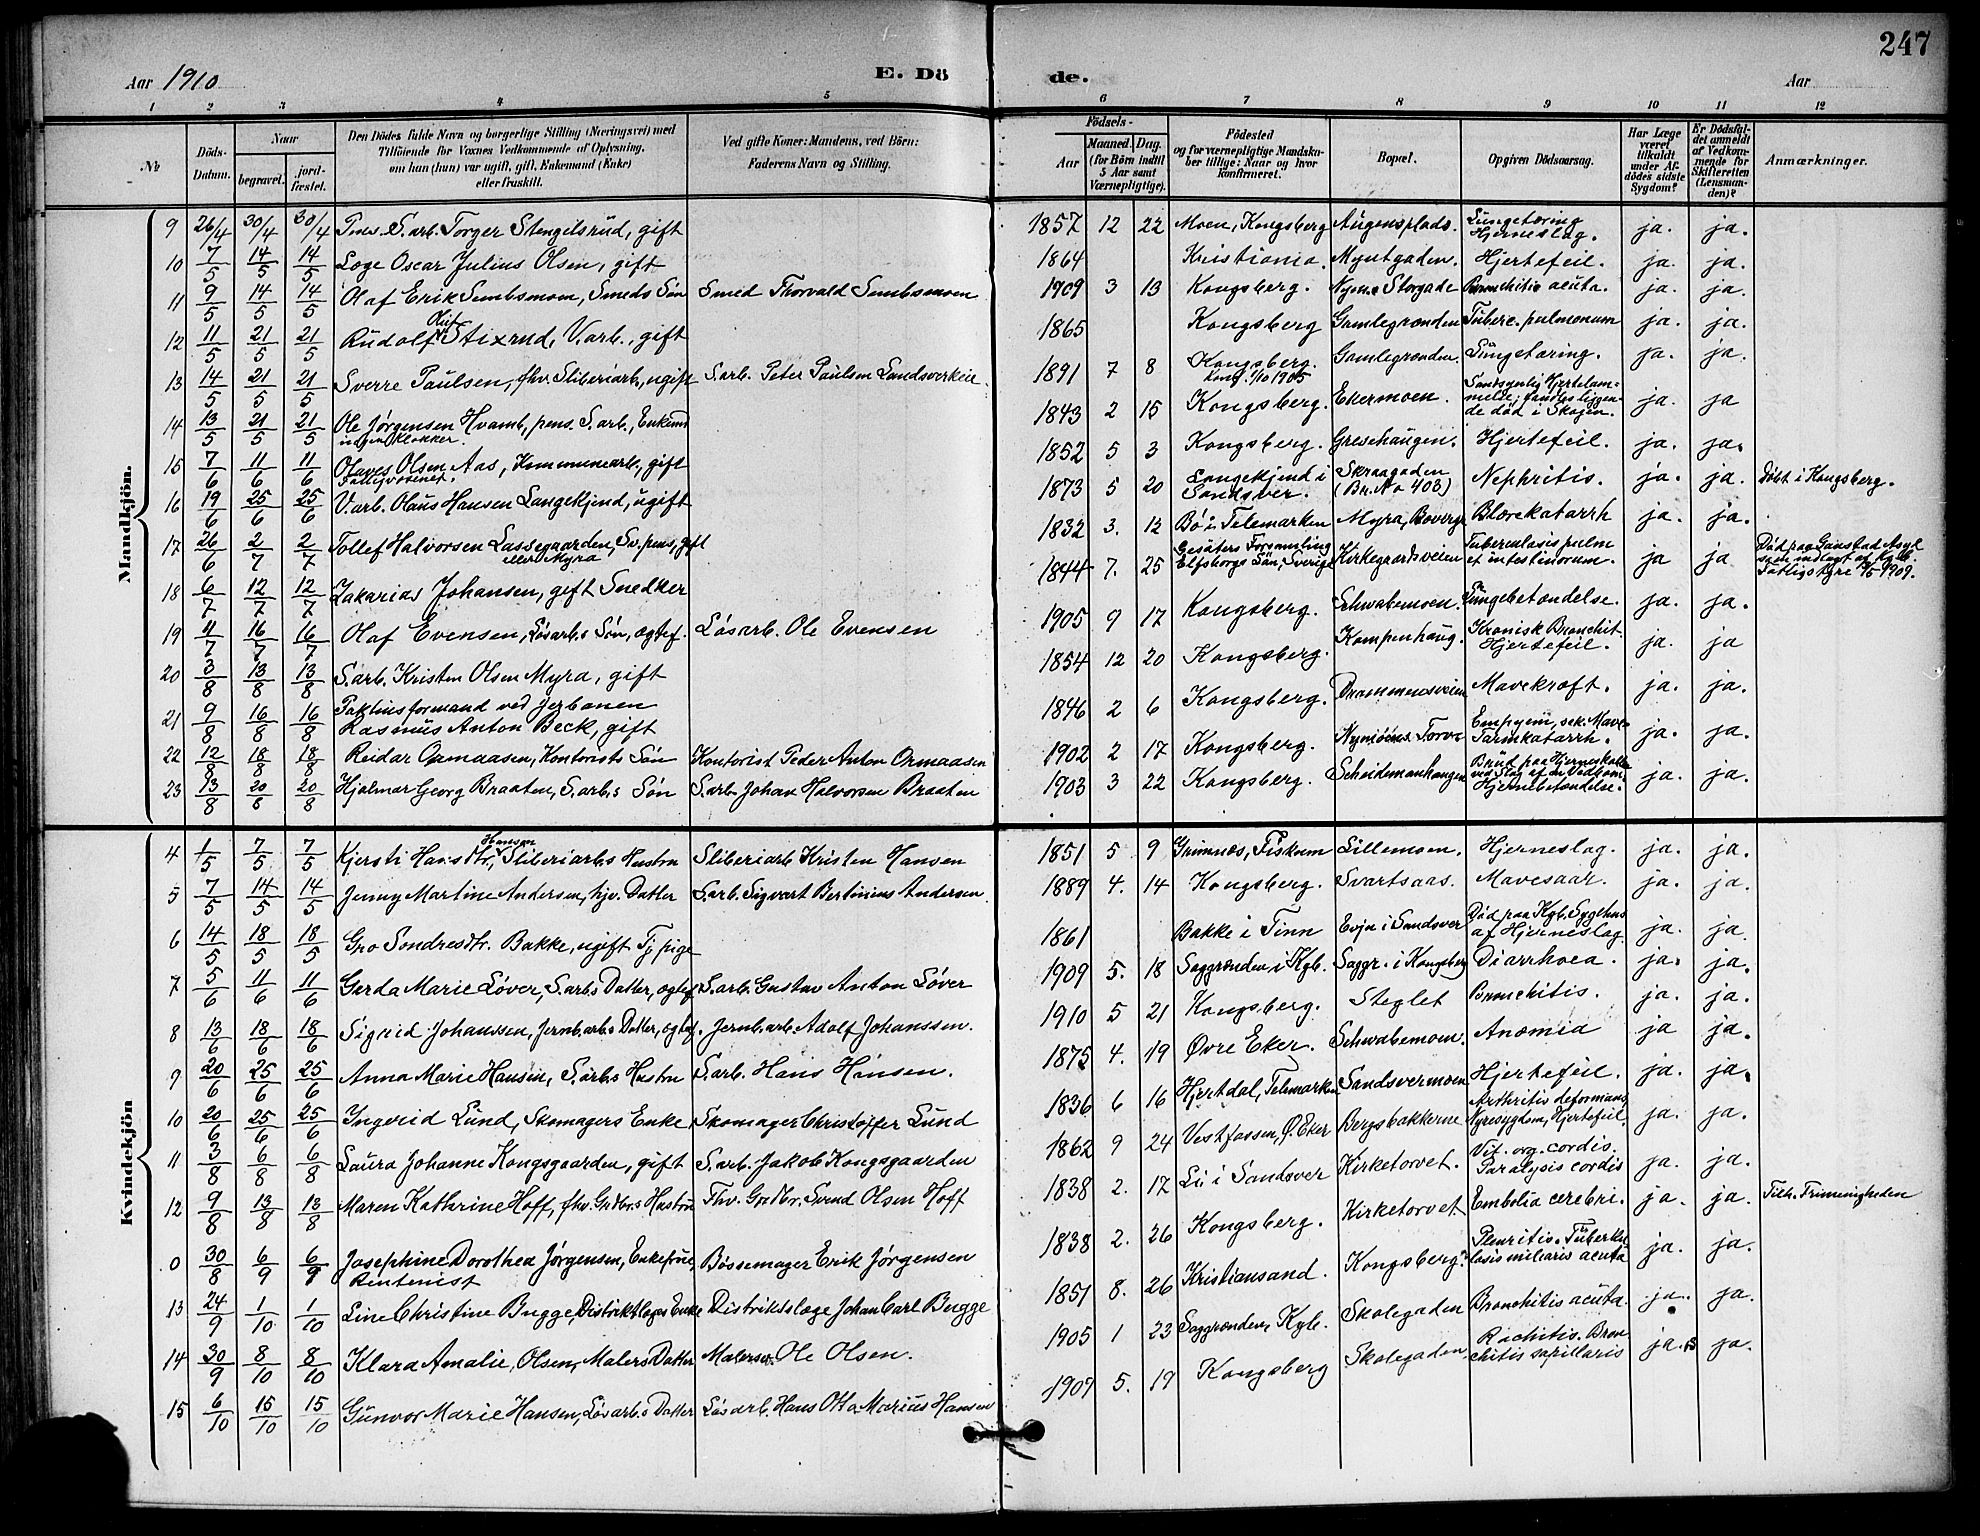 247
Aar 1910
E. Dö de.
Aar
1 2 3 4 5 6 7 8 9 10 11 12
No
Döds-Datum.
Naar
begravet.
jordfæstet.
Den Dödes fulde Navn og borgerlige Stilling (Næringsvei) med
Tilföiende for Voxnes Vedkommende af Oplysning,
om han (hun) var ugift, gift, Enkemand (Enke)
eller fraskilt.
Ved gifte Koner: Mandens, ved Börn:
Faderens Navn og Stilling.
Födsels-
Aar
Maaned. Dag.
(for Börn indtil
5 Aar samt
Værnepligtige).
Födested
og for værnepligtige Mandska-
ber tillige: Naar og hvor
konfirmeret.
Bopæl.
Opgiven Dödsaarsag.
Har Læge
været
tilkaldt
under Af-
dödes sidste
Sygdom?
Er Dödsfal-
det anmeldt
af Vedkom-
mende for
Skifteretten
(Lensman-
den)?
Anmærkninger.
Mandkjön.
9 26/4 30/4 30/4 Pens. S.arb. Torger Stengelsrud, gift 1857 12 22 Moen, Kongsberg Augensplads. Lungetæring Hjerneslag. ja. ja.
10 7/5 14/5 14/5 Loge Oscar Julius Olsen, gift 1864 Kristiania. Myntgaden. Hjertefeil. ja. ja.
11 9/5 14/5 14/5 Olaf Erik Sembsmoen, Smeds Søn Smed Thorvald Sembsmoen 1909 3 13 Kongsberg. Nym.s Storgade Bronchitis acuta. ja. ja.
12 11/5 21/5 21/5 Rudolf Stixrud, V.arb., gift 1865 Kongsberg Gamlegrænden Tuberc. pulmonum ja. ja.
13 14/5 21/5 21/5 Sverre Paulsen, fhv. Sliberiarb., ugift S.arb. Peter Paulsen Landsverkeie. 1891 7 8 Kongsberg. Konf. 1/10 1905 Gamlegrænden. Lungetæring. ja. ja.
14 13/5 21/5 21/5 Ole Jørgensen Hvamb, pens. S.arb., Enkemd 1843 2 15 Kongsberg. Ekermoen. Sandsynlig Hjertelammelse; fandtes liggende død i Skogen. ja. ja
15 7/6 11/6 11/6 Olaves Olsen Aas, Kommunearb., gift 1852 5 3 Kongsberg. Gresehaugen. Hjertefeil. ja. ja.
16 19/6 25/6 25/6 V.arb. Olaus Hansen Langekjend, ugift 1873 5 20 Langekjend i Sandsver. Skraagaden (Br.No 403) Nephritis. ja. ja. Döbt i Kongsberg.
17 26/6 2/7 2/7 Tollef Halvorsen Lassegaarden, Sv. pens, gift eller Myra 1832 3. 12 Bö i Telemarken Myra, Boverge Blærekatarrh ja. ja.
18 6/7 12/7 12/7 Zakarias Johansen, gift Snedker 1844 7. 25 Gesäters Forsamling Elfsborgs Län, Sverige Kirkegaardsveien Tuberculosis pulm et intestinorum. ja ja Død paa Gaustad Asyl
19 11/7 16/7 16/7 Olaf Evensen, Løsarb.s Søn, ægtef. Løsarb. Ole Evensen 1905 9 17 Kongsberg. Schwabemoen. Lungebetændelse. ja. ja.
20 3/8 13/8 13/8 S.arb. Kristen Olsen Myra, gift 1854 12 20 Kongsberg. Kampenhaug. Kronisk Bronchit. Hjertefeil. ja. ja
21 9/8 16/8 16/8 Paktusformand ved Jerbanen
Rasmus Anton Beck, gift 1846 2 6 Kongsberg. Drammensveien Mavekræft. ja. ja.
22 12/8 18/8 18/8 Reidar Ormaasen, Kontorists Søn Kontorist Peder Anton Ormaasen 1902 2 17 Kongsberg. Nymoens Torv. Empyem, sek. Mave-Tarmkatarrh. ja. ja.
23 13/8 20/8 20/8 Hjalmar Georg Braaten, S.arb.s Søn S.arb. Johan Halvorsen Braaten 1903 3 22 Kongsberg. Scheidemanhaugen Brud paa Hjerneskalle Hjernebetændelse. ja. ja.
Kvindekjön
4 1/5 7/5 7/5 Kjersti Hansdtr. Hansen, Sliberiarbs Hustru Sliberiarb Kristen Hansen 1851 5 9 Grimnæs, Fiskum Lillemoen. Hjerneslag. ja. ja.
5 7/5 14/5 14/5 Jenny Martine Andersen, hjv. Datter S.arb. Sigvart Bertinius Andersen 1889 4. 14 Kongsberg. Svartsaas. Mavesaar. ja. ja.
6 14/5 18/5 18/5 Gro Sondresdtr. Bakke, ugift Tj. pige 1861 Bakke i Tinn Evju i Sandsver Død paa Kgb. Sygehus af Hjerneslag. ja. ja.
7 5/6 11/6 11/6 Gerda Marie Løver, S.arb.s Datter, ægtef. S.arb. Gustav Anton Løver 1909 5. 18 Saggrænden i Kgb. Saggr. i Kongsberg Diarrhoea. ja. ja.
8 13/6 18/6 18/6 Sigrid Johanssen, Jernb.arb.s Datter, ægtef. Jernb.arb. Adolf Johanssen. 1910 5 21 Kongsberg. Steglet Bronchitis. ja. ja.
9 20/6 25/6 25/6 Anna Marie Hansen, S.arb.s Hustru S.arb. Hans Hansen. 1875 4. 19 Øvre Eker. Schwabemoen. Anæmia ja ja.
10 20/6 25/6 25/6 Ingerid Lund, Skomagers Enke, Skomager Christoffer Lund 1836 6 16 Hjertdal, Telemarken Sandsvermoen Hjertefeil. ja. ja.
11 3/8 6/8 6/8 Laura Johanne Kongsgaarden, gift S.arb. Jakob Kongsgaarden 1862 9 24 Vestfossen, Ø. Eker Bergsbakkerne Arthritis deformans Nyresygdom, Hjertefeil. ja. ja.
12 9/8 13/8 13/8 Maren Kathrine Hoff, fhv. Grdbr.s Hustru Fhv. Grdbr. Svend Olsen Hoff 1838 2. 17 Li i Sandsver Kirketorvet. Vit. org. cordis. Paralysis cordis ja. ja.
0 30/8 6/9 6/9 Josephine Dorothea Jørgensen, Enkefrue, Rentenist Bøssemager Erik Jørgensen 1838 2. 26 Kongsberg. Kirketorvet Embolia cerebri. ja. ja. Tilh. Frimenigheden
13 24/9 1/10 1/10 Line Christine Bugge, Distriktslæges Enke Distriktslæge Johan Carl Bugge 1851 8. 26 Kristiansand. Kongsberg. Pleuritis. Tuberkulosis miliaris acuta ja. ja.
14 30/9 8/10 8/10 Klara Amalie Olsen, Malers Datter Malersv. Ole Olsen. 1905 1 23 Saggrænden, Kgb. Skolegaden Bronchitis acuta. ja. ja.
15 6/10 15/10 15/10 Gunvor Marie Hansen, Løsarb.s Datter Løsarb. Hans Otto Marius Hansen 1907 5. 19 Kongsberg Skolegaden. Rachitis. Bronchitis capillaris ja. ja.